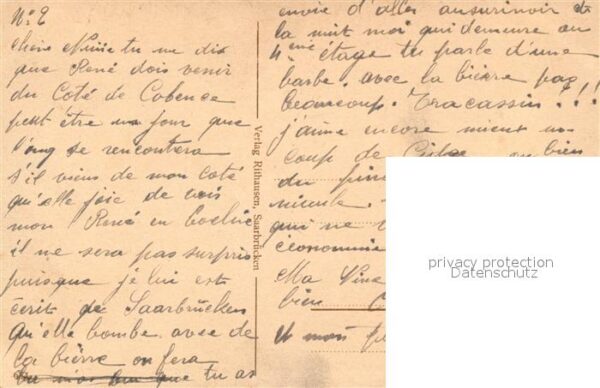 No 2
Chère Ninie tu me dis
que René dois venir
du Coté de Cobence
peut être un jour que
l'ong se rencontera
s'il viens de mon coté
qu'elle joie de vois
mon René en
il ne sera pas surpris
puisque je lui est
écrit de Saarbrücken
qu'elle bombe avec de
la bierre on fera
que tu as
Verlag Rithausen, Saarbrücken
envie d'aller au urinoir de
la nuit moi qui demeure au
4eme étage tu parle d'une
barbe. avec la bierre pas
beaucoup. Tracassin...!!
j'aime encore mieux un
coup de bien
du
mieule.
qui ne
économie
Ma Nine
bien
et mon
privacy protection
Datenschutz